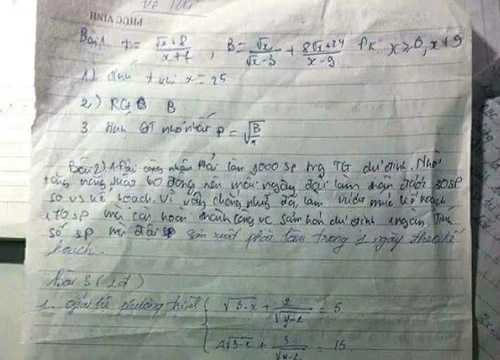 Về
PHÚC
Bài 1 A = √x + 8 / x + 7 , B = √x / √x - 3 + 8√x + 24 / x - 9 ĐK x ≥ 0, x ≠ 9
1) Tính A khi x = 25
2) RG B
3 tính GT nhỏ nhất P =
Bài 2) 1 đội công nhân phải làm 1000 sp trg TG dự định. Nhờ
tăng năng suất lao động nên mỗi ngày đội làm thêm được 30SP
so vs kế hoạch. Vì vậy chẳng những đã làm vượt mức kế hoạch
170 SP mà còn hoàn thành công việc sớm hơn dự định 1 ngày. Tính
số SP mà đội sản xuất phải làm trong 1 ngày theo kế
hoạch.
Bài 3 (2đ)
1. giải hệ phương trình { √3-x + 2 / √y-2 = 5
4√3-x + 3 / √y-2 = 15